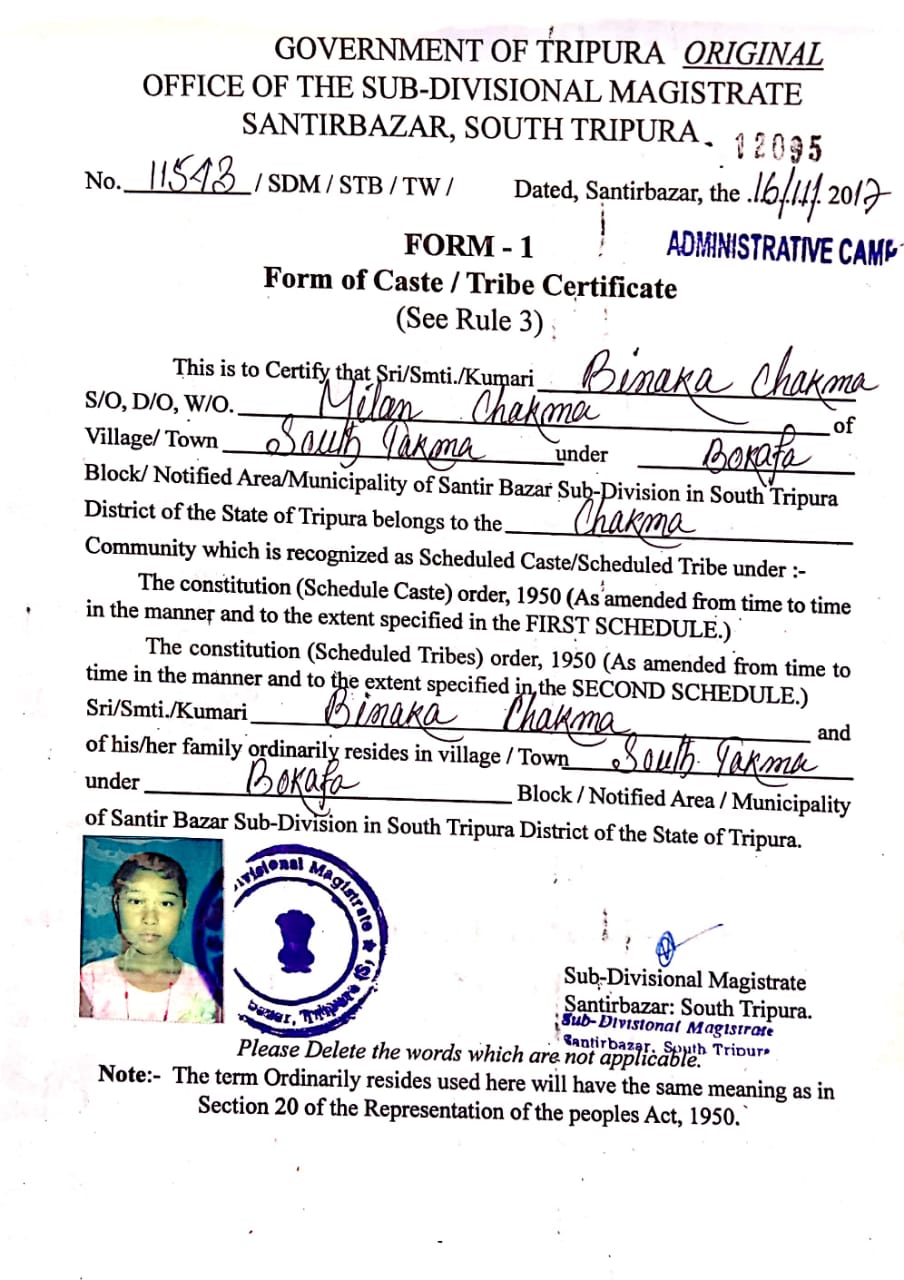 GOVERNMENT OF TRIPURA ORIGINAL
OFFICE OF THE SUB-DIVISIONAL MAGISTRATE
SANTIRBAZAR, SOUTH TRIPURA.
12095
No. 11543 / SDM / STB / TW / Dated, Santirbazar, the .16/11/. 2017
FORM - 1 ADMINISTRATIVE CAMP
Form of Caste / Tribe Certificate
(See Rule 3)
This is to Certify that Sri/Smti./Kumari Binaka Chakma
S/O, D/O, W/O. Milan Chakma of
Village/ Town South Takma under Bokafa
Block/ Notified Area/Municipality of Santir Bazar Sub-Division in South Tripura
District of the State of Tripura belongs to the Chakma
Community which is recognized as Scheduled Caste/Scheduled Tribe under :-
The constitution (Schedule Caste) order, 1950 (As amended from time to time
in the manner and to the extent specified in the FIRST SCHEDULE.)
The constitution (Scheduled Tribes) order, 1950 (As amended from time to
time in the manner and to the extent specified in the SECOND SCHEDULE.)
Sri/Smti./Kumari Binaka Chakma and
of his/her family ordinarily resides in village / Town South Takma
under Bokafa Block / Notified Area / Municipality
of Santir Bazar Sub-Division in South Tripura District of the State of Tripura.
visional Magistrate ★ (S)
bazar, Tripura
Sub-Divisional Magistrate
Santirbazar: South Tripura.
Sub-Divisional Magistrate
Santirbazar, South Tripura
Please Delete the words which are not applicable.
Note:- The term Ordinarily resides used here will have the same meaning as in
Section 20 of the Representation of the peoples Act, 1950.